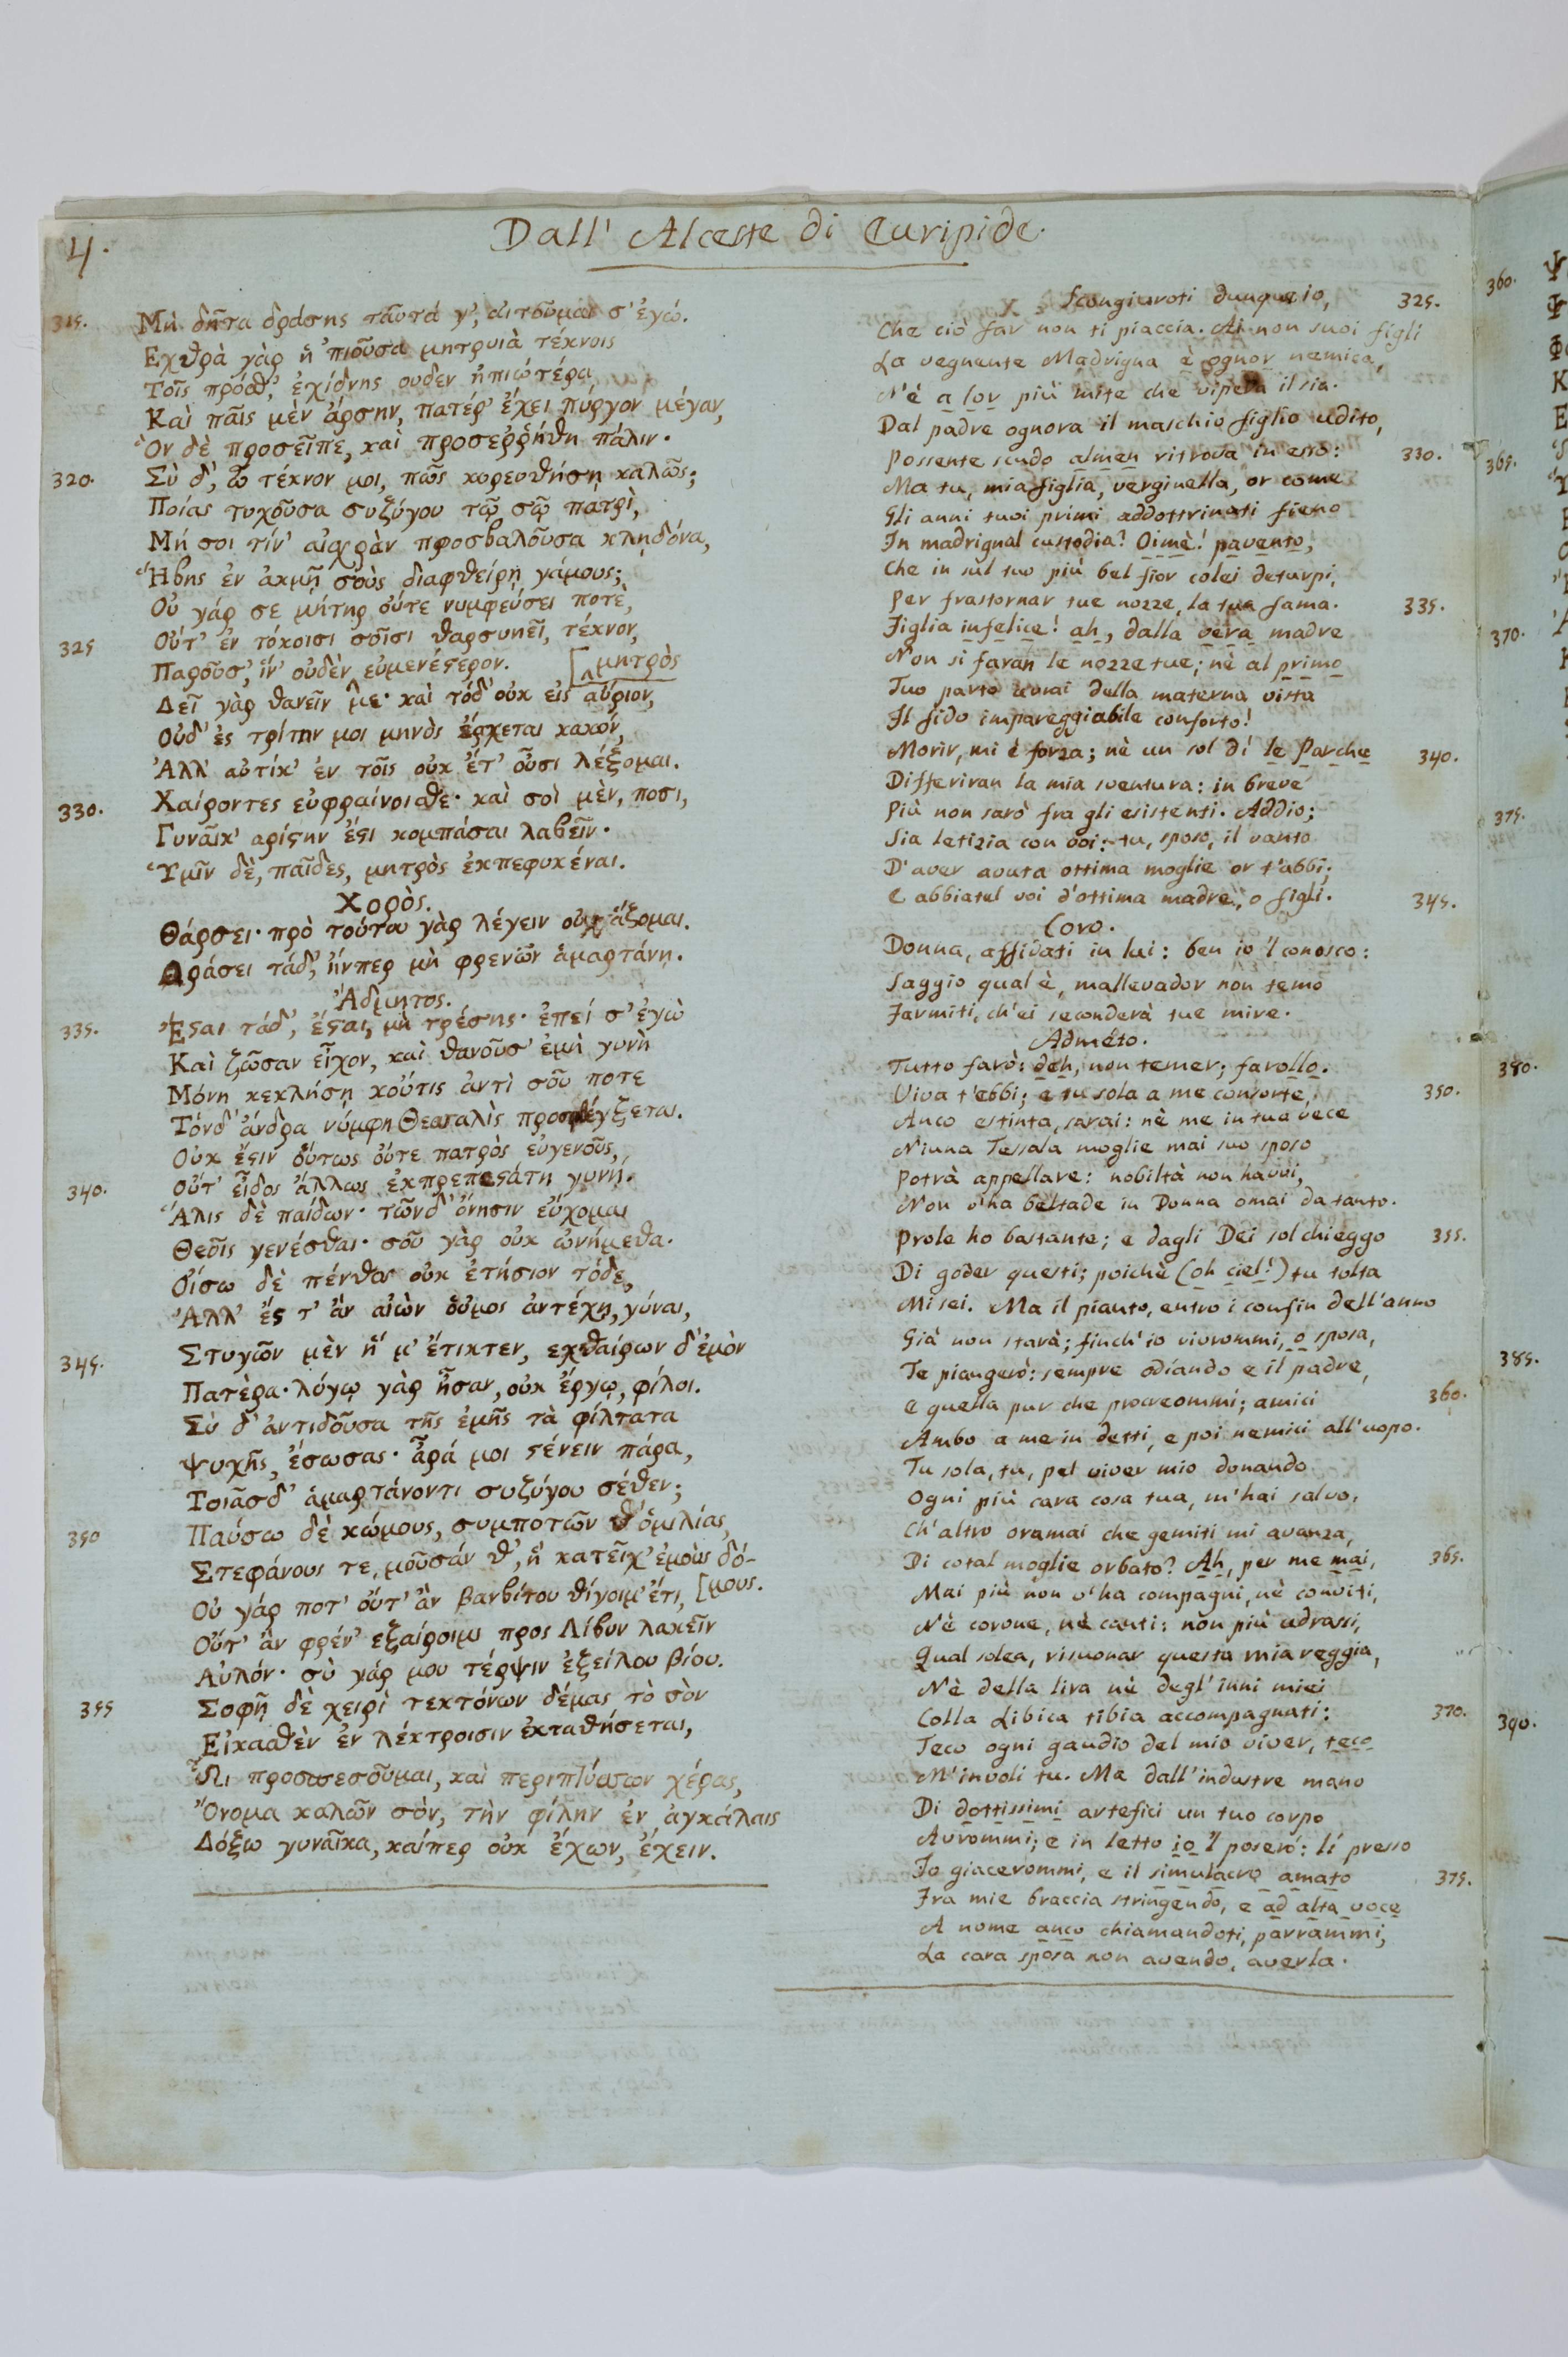 4.
Dall' Alceste di Euripide.
315. Μὴ δῆτα δράσῃς ταῦτά γ', αἰτοῦμαί σ' ἐγώ.
Εχθρὰ γὰρ ἡ 'πιοῦσα μητρυιὰ τέκνοις
Τοῖς πρόσθ', ἐχίδνης ουδεν ἠπιωτέρα,
Καὶ παῖς μὲν ἄρσην, πατέρ' ἔχει πύργον μέγαν,
Ὃν δὲ προσεῖπε, καὶ προσεῤῥήθη πάλιν.
320. Σὺ δ', ὦ τέκνον μοι, πῶς κορευθήσῃ καλῶς;
Ποίας τυχοῦσα συζύγου τῷ σῷ πατρὶ,
Μή σοι τίν' αἰσχρὰν προσβαλοῦσα κληδόνα,
Ἥβης ἐν ἀκμῇ σοὺς διαφθείρῃ γάμους;
Οὐ γάρ σε μήτηρ οὔτε νυμφεύσει ποτὲ,
325 Οὔτ' ἐν τόκοισι σοῖσι θαρσυνεῖ, τέκνον,
Παροῦσ', ἵν' οὐδὲν εὐμενέςερον. [μητρὸς
Δεῖ γὰρ θανεῖν με· καὶ τόδ' οὐκ εἰς αὔριον,
Οὐδ' ἐς τρίτην μοι μηνὸς ἔρχεται κακόν,
Ἀλλ' αὐτίκ' ἐν τοῖς οὐκ ἔτ' οὖσι λέξομαι.
330. Χαίροντες εὐφραίνοισθε· καὶ σοὶ μὲν, ποσι,
Γυναῖκ' αρίςην ἔςι κομπάσαι λαβεῖν·
Ὑμῖν δὲ, παῖδες, μητρὸς ἐκπεφυκέναι.
Χορὸς.
Θάρσει· πρὸ τούτου γὰρ λέγειν οὐχ ἅζομαι.
Δράσει τάδ', ἤνπερ μὴ φρενῶν ἁμαρτάνῃ.
Ἄδμητος.
335. Ἔςαι τάδ', ἔςαι, μὴ τρέσῃς· ἐπεί σ' ἐγὼ
Καὶ ζῶσαν εἶχον, καὶ θανοῦσ' ἐμὴ γυνὴ
Μόνη κεκλήσῃ κοὔτις ἀντὶ σοῦ ποτε
Τόνδ' ἄνδρα νύμφη Θεσσαλὶς προσφθέγξεται.
Οὐκ ἔςιν οὕτως οὔτε πατρὸς εὐγενοῦς,
340. Οὔτ' εἶδος ἄλλως ἐκπρεπεςάτη γυνή.
Ἅλις δὲ παίδων· τῶνδ' ὄνησιν εὔχομαι
Θεοῖς γενέσθαι· σοῦ γὰρ οὐκ ὠνήμεθα.
Οἴσω δὲ πένθος οὐκ ἐτήσιον τόδε,
Ἀλλ' ἔς τ' ἂν αἰὼν οὑμος ἀντέχῃ, γύναι,
345. Στυγῶν μὲν ἥ μ' ἔτικτεν, εχθαίρων δ' ἐμὸν
Πατὲρα· λόγῳ γὰρ ἦσαν, οὐκ ἔργῳ, φίλοι.
Σὺ δ' ἀντιδοῦσα τῆς ἐμῆς τὰ φίλτατα
Ψυχῆς, ἔσωσας· ἆρά μοι ςένειν πάρα,
Τοιᾶσδ' ἁμαρτάνοντι συζύγου σέθεν;
350 Παύσω δὲ κώμους, συμποτῶν θ' ὁμιλίας,
Στεφάνους τε, μοῦσάν θ', ἣ κατεῖχ' ἐμοὺς δό-
Οὐ γάρ ποτ' οὔτ' ἂν βαρβίτου θίγοιμ' ἔτι, [μους.
Οὔτ' ἂν φρέν' εξαίροιμι προς Λίβυν λακεῖν
Αὐλόν· σὺ γάρ μου τέρψιν ἐξείλου βίου.
355 Σοφῇ δὲ χειρὶ τεκτόνων δέμας τὸ σὸν
Εἰκασθὲν ἐν λέκτροισιν ἐκταθήσεται,
Ὧι προσπεσοῦμαι, καὶ περιπτύσσων χέρας,
Ὄνομα καλῶν σὸν, τὴν φίλην ἐν ἀγκάλαις
Δόξω γυναῖκα, καίπερ οὐκ ἔχων, ἔχειν.
Scongiuroti dunque io, 325.
Che ciò far non ti piaccia. Ai non suoi figli
La vegnente Madrigna è ognor nemica,
N'è a lor più mite che vipera il sia.
Dal padre ognora il maschio figlio udito,
Possente scudo almen ritrova in esso: 330.
Ma tu, mia figlia, verginella, or come
Gli anni tuoi primi addottrinati fieno
In madrignal custodia? Oimè! pavento,
Che in sul tuo più bel fior colei deturpi,
Per frastornar tue nozze, la tua fama. 335.
Figlia infelice! ah, dalla vera madre
Non si faran le nozze tue; nè al primo
Tuo parto avrai della materna vista
Il fido impareggiabile conforto!
Morir, mi è forza; nè un sol dí le Parche 340.
Differiran la mia sventura: in breve
Più non sarò fra gli esistenti. Addio;
Sia letizia con voi: tu, sposo, il vanto
D'aver avuta ottima moglie or t'abbi;
E abbiatel voi d'ottima madre, o figli. 345.
Coro.
Donna, affidati in lui: ben io 'l conosco:
Saggio qual è, mallevador non temo
Farmiti, ch'ei seconderà tue mire.
Admèto.
Tutto farò: deh, non temer; farollo.
Viva t'ebbi; e tu sola a me consorte, 350.
Anco estinta, sarai: nè me in tua vece
Niuna Tessala moglie mai suo sposo
Potrà appellare: nobiltà non havvi,
Non v'ha beltade in Donna omai da tanto.
Prole ho bastante; e dagli Dei sol chieggo 355.
Di goder questi; poichè (oh ciel!) tu tolta
Mi sei. Ma il pianto, entro i confin dell'anno
Già non starà; finch'io vivrommi, o sposa,
Te piangerò: sempre odiando e il padre,
E quella pur che procreommi; amici 360.
Ambo a me in detti, e poi nemici all'uopo.
Tu sola, tu, pel viver mio donando
Ogni più cara cosa tua, m'hai salvo.
Ch'altro oramai che gemiti mi avanza,
Di cotal moglie orbato? Ah, per me mai, 365.
Mai più non v'ha compagni, nè conviti,
Nè corone, nè canti: non più udrassi,
Qual solea, risuonar questa mia reggia,
Nè della lira nè degl'inni miei
Colla Libica tibia accompagnati: 370.
Teco ogni gaudio del mio viver, teco
M'involi tu. Ma dall'industre mano
Di dottissimi artefici un tuo corpo
Avrommi; e in letto io 'l poserò: lí presso
Io giacerommi, e il simulacro amato 375.
Fra mie braccia stringendo, e ad alta voce
A nome anco chiamandoti, parrammi,
La cara sposa non avendo, averla.
360.
365.
370.
375.
380.
385.
390.